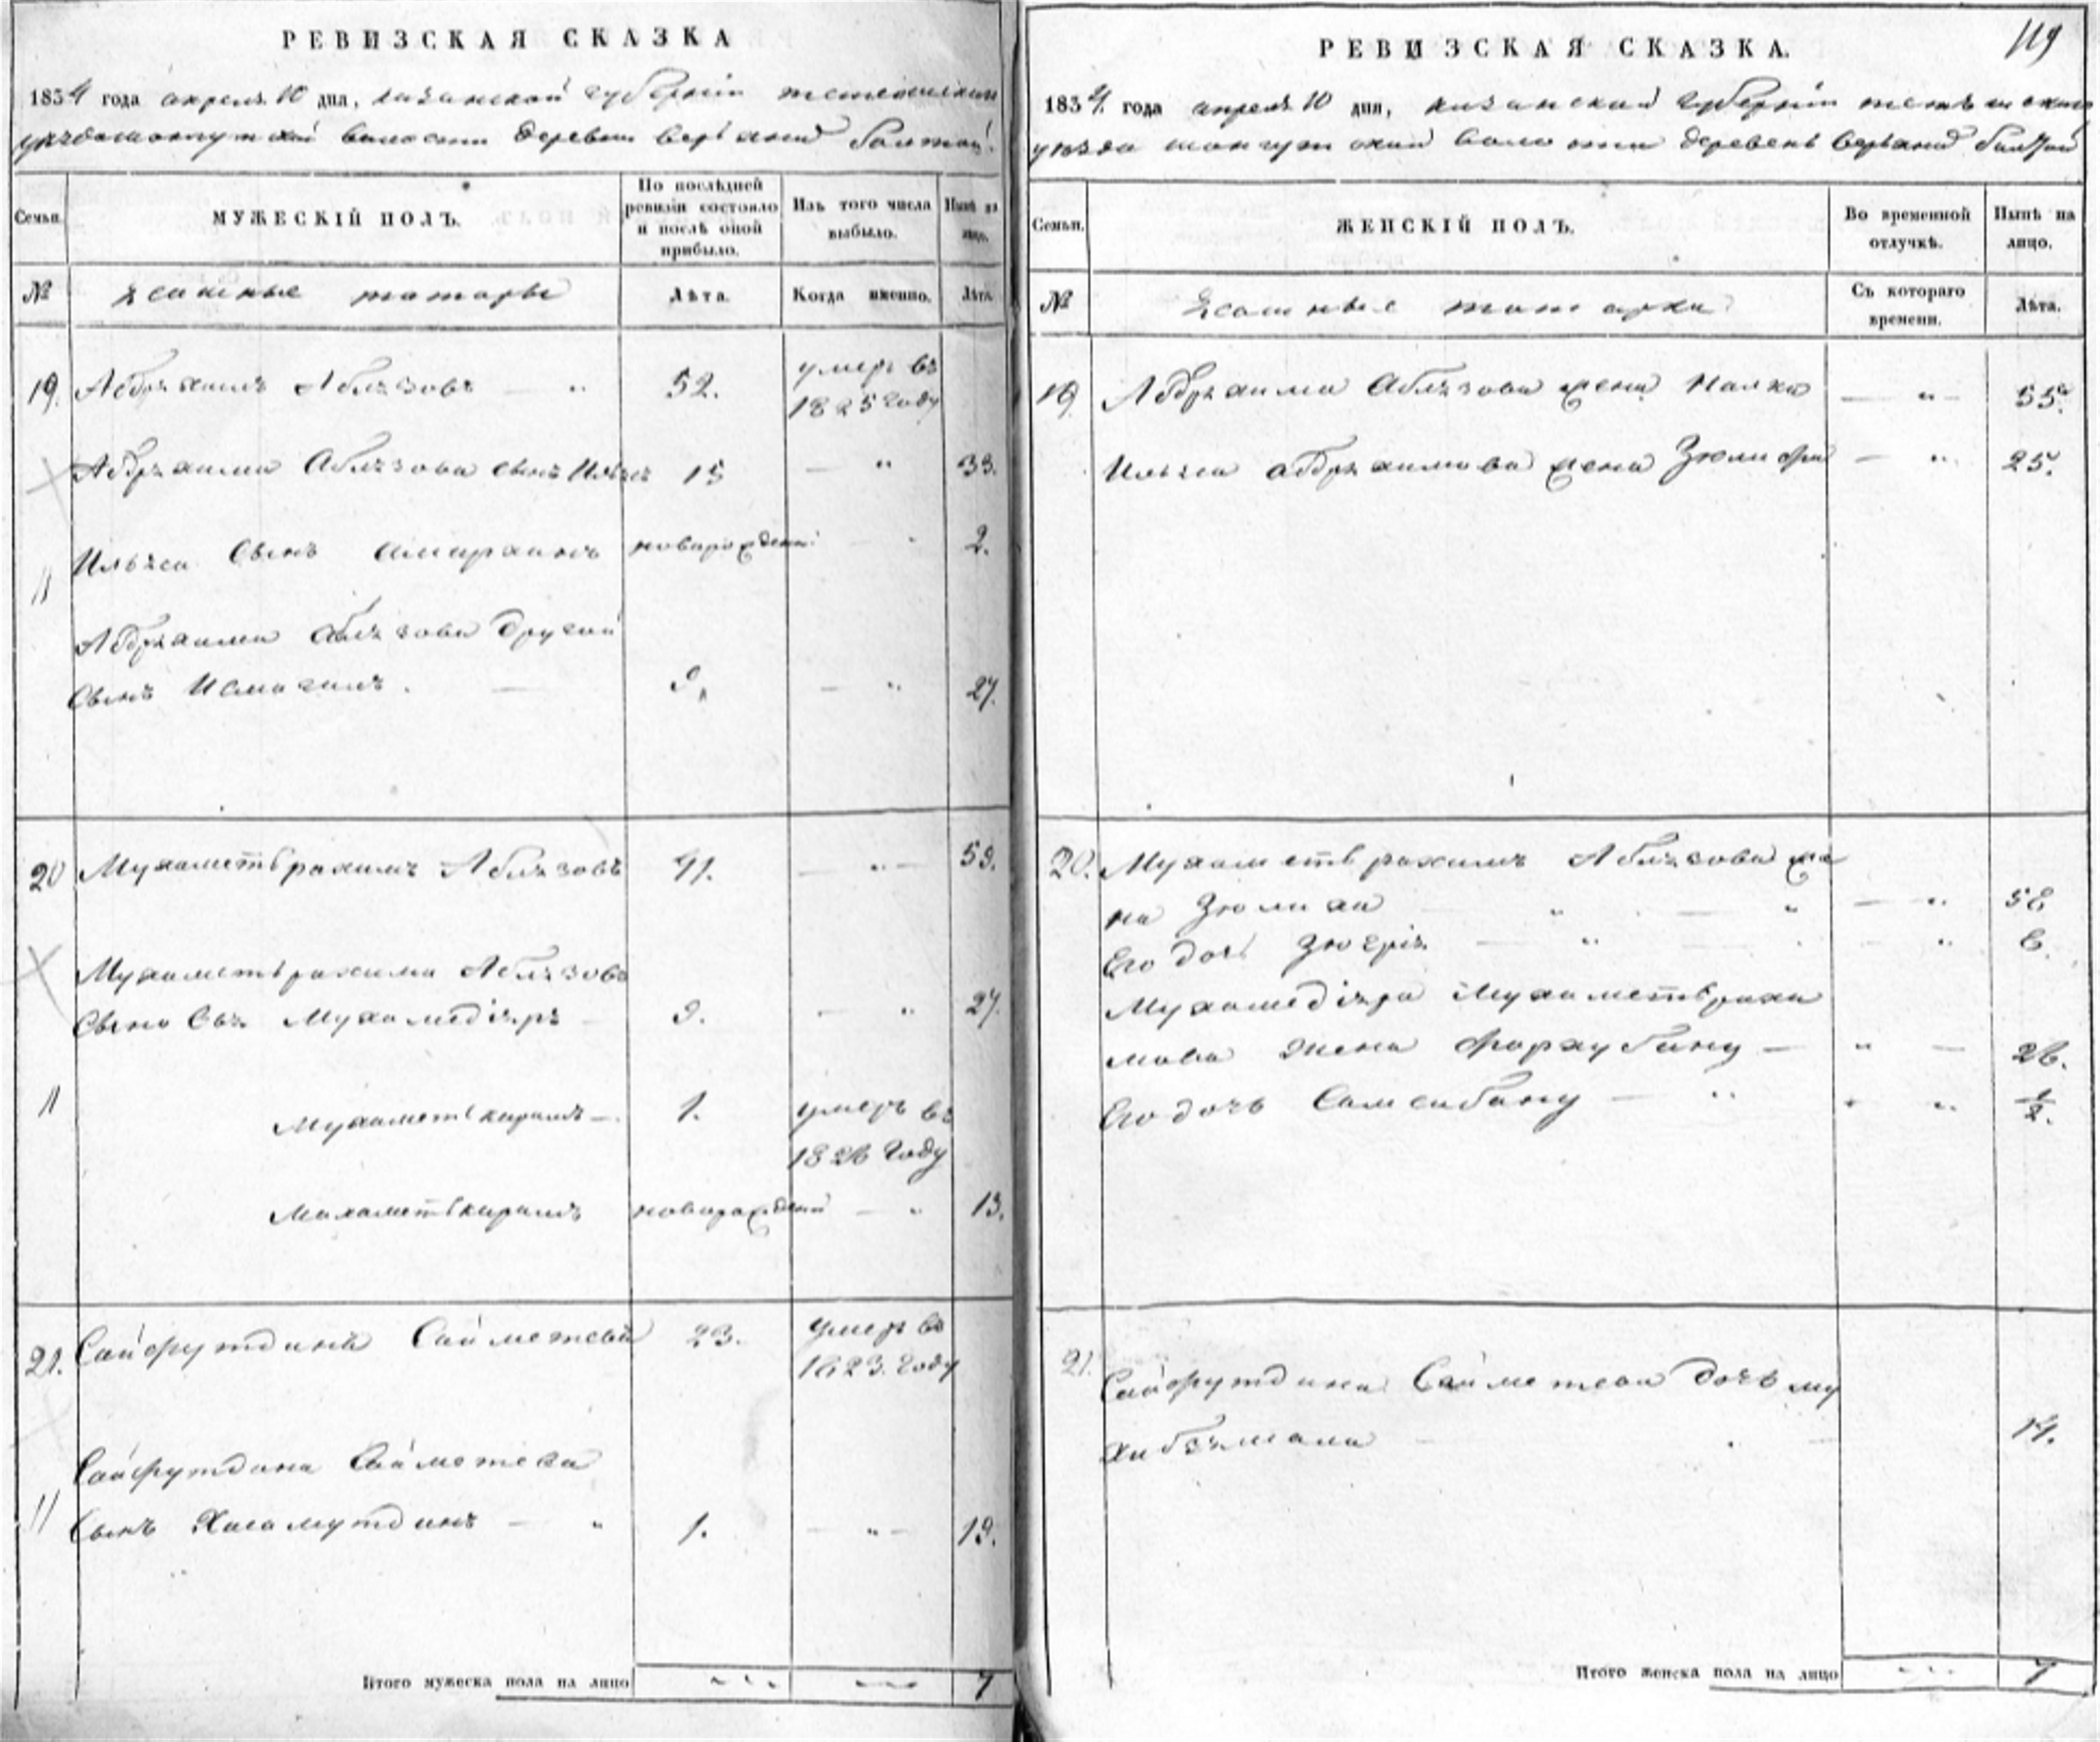 РЕВИЗСКАЯ СКАЗКА
1834 года апреля 10 дня, казанской губернiи тетюшскаго
уезда шонгутской волости деревни верхней болтой
Семьи.
МУЖЕСКIЙ ПОЛЪ.
По послѣдней ревизiи состояло и послѣ оной прибыло.
Изъ того числа выбыло.
Нынѣ на лицо.
№
ясашные татары
Лѣта.
Когда именно.
Лѣта.
19. Абдряхимъ Аблязовъ — 〃 52. умеръ въ
1825 году
Абдряхима Аблязова сынъ Ильясъ 15 — 〃 33.
Ильяса Сынъ Амирханъ новорожденый 2.
Абдряхима Аблязова другой
Сынъ Исмагилъ. — 9. — 〃 27.
20 Мухаметьрахимъ Аблязовъ 41. — 〃 — 59.
Мухаметьрахима Аблязова
Сыновья Мухамедiяръ 9. — 〃 27.
Мухаметькаримъ — 1. умеръ въ
1826 году
Махаметькаримъ новорожденый — 〃 13.
21. Сайфутдинъ Сайметевъ 23. умеръ въ
1823. году
Сайфутдина Сайметева
Сынъ Хисамутдинъ — 〃 1. — 〃 — 19.
Итого мужеска пола на лицо 7
119
РЕВИЗСКАЯ СКАЗКА.
1834. года апреля 10 дня, казанской губернiи тетюшскаго
уезда шонгутской волости деревень верхней болтой
Семьи.
ЖЕНСКIЙ ПОЛЪ.
Во временной отлучкѣ.
Нынѣ на лицо.
№
Ясашные татарки
Съ котораго времени.
Лѣта.
19 Абдряхима Аблязова жена — 〃 — 55.
Ильяса абдряхимова жена — 〃 25.
20. Мухаметьрахима Аблязова же
на Зюлиха — 〃 58
Его дочь 〃 6.
Мухамедiяра Мухаметьрахи
мова жена Фархубану — 〃 — 26.
Его дочь Самсибану — 〃 1/2.
21. Сайфутдина Сайметева дочь му
хибзямала 14.
Итого женска пола на лицо 7